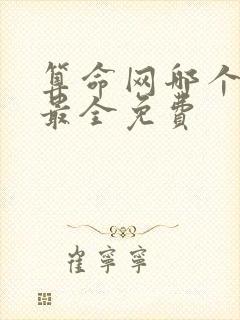 算命网哪个
最全免费
崔寧寧